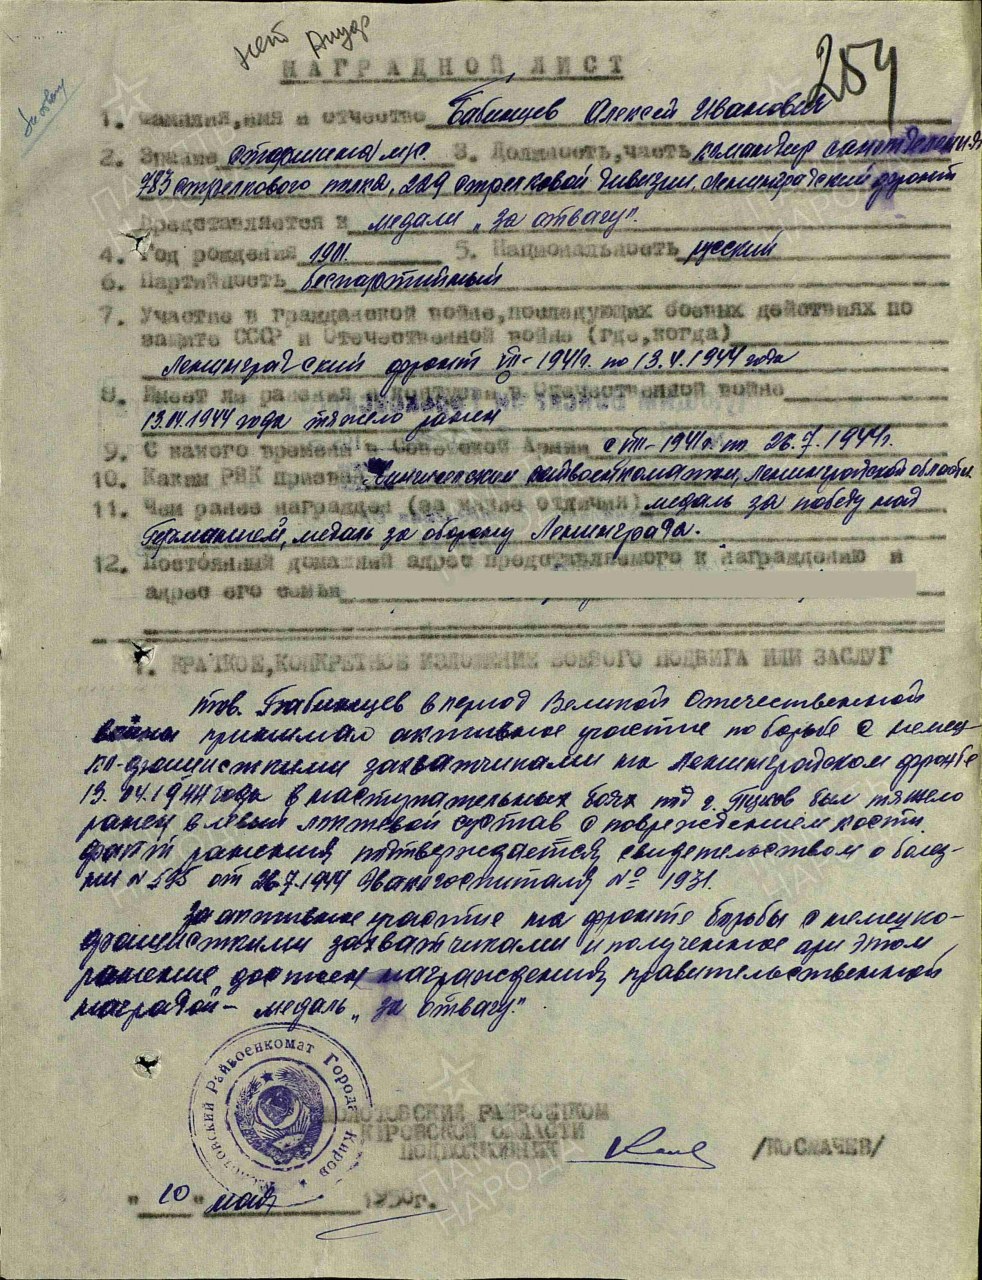 нет
254
НАГРАДНОЙ ЛИСТ
1. Фамилия, имя и отчество Бабинцев Алексей Иванович
2. Звание старшина м/с. 3. Должность, часть командир санотделения
783 стрелкового полка, 229 стрелковой дивизии, Ленинградский фронт
Представляется к медали „за отвагу".
4. Год рождения 1911. 5. Национальность русский
6. Партийность беспартийный
7. Участие в гражданской войне, последующих боевых действиях по
защите СССР и Отечественной войне (где, когда)
Ленинградский фронт VIII-1941г. по 13.4.1944 года
8. Имеет ли ранения и контузии в Отечественной войне
13.04.1944 года тяжело ранен
9. С какого времени в Советской Армии с VIII-1941г. по 26.7.1944г.
10. Каким РВК призван райвоенкоматом, Ленинградской области
11. Чем ранее награжден (за какие отличия) медаль за победу над
Германией, медаль за оборону Ленинграда.
12. Постоянный домашний адрес представляемого к награждению и
адрес его семьи
1. КРАТКОЕ, КОНКРЕТНОЕ ИЗЛОЖЕНИЕ БОЕВОГО ПОДВИГА ИЛИ ЗАСЛУГ
тов. Бабинцев в период Великой Отечественной
войны принимал активное участие по борьбе с немец-
ко-фашисткими захватчиками на Ленинградском фронте
13.04.1944 года в наступательных боях под г. Псков был тяжело
ранен в левый локтевой сустав с повреждением кости
факт ранения подтверждается свидетельством о болез-
ни № 535 от 26.7.1944 Эвакогоспиталя № 1931.
За активное участие на фронте борьбы с немецко-
фашисткими захватчиками и полученное при этом
ранение, достоен награждения правительственной
наградой - медаль „за отвагу"
Молотовский Райвоенкомат Города Киров
МОЛОТОВСКИЙ РАЙВОЕНКОМ
КИРОВСКОЙ ОБЛАСТИ
ПОДПОЛКОВНИК /КОСМАЧЕВ/
"10" мая 1950г.
ПАМЯТЬ НАРОДА